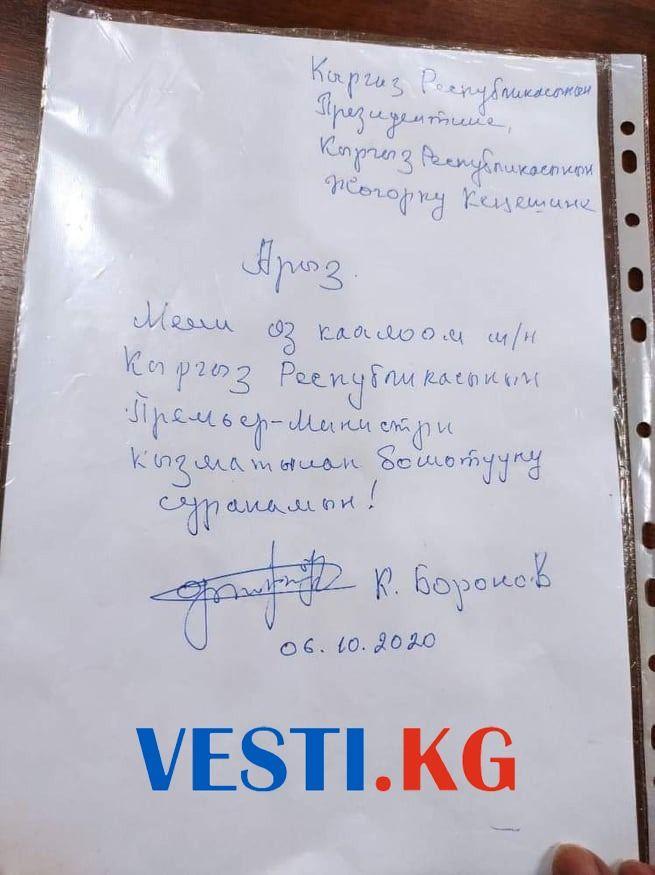 Кыргыз Республикасынын
Президентине,
Кыргыз Республикасынын
Жогорку Кеңешине
Арыз.
Мени өз каалоом м/н
Кыргыз Республикасынын
Премьер-Министри
кызматынан бошотууну
суранамын!
К. Боронов
06.10.2020
VESTI.KG